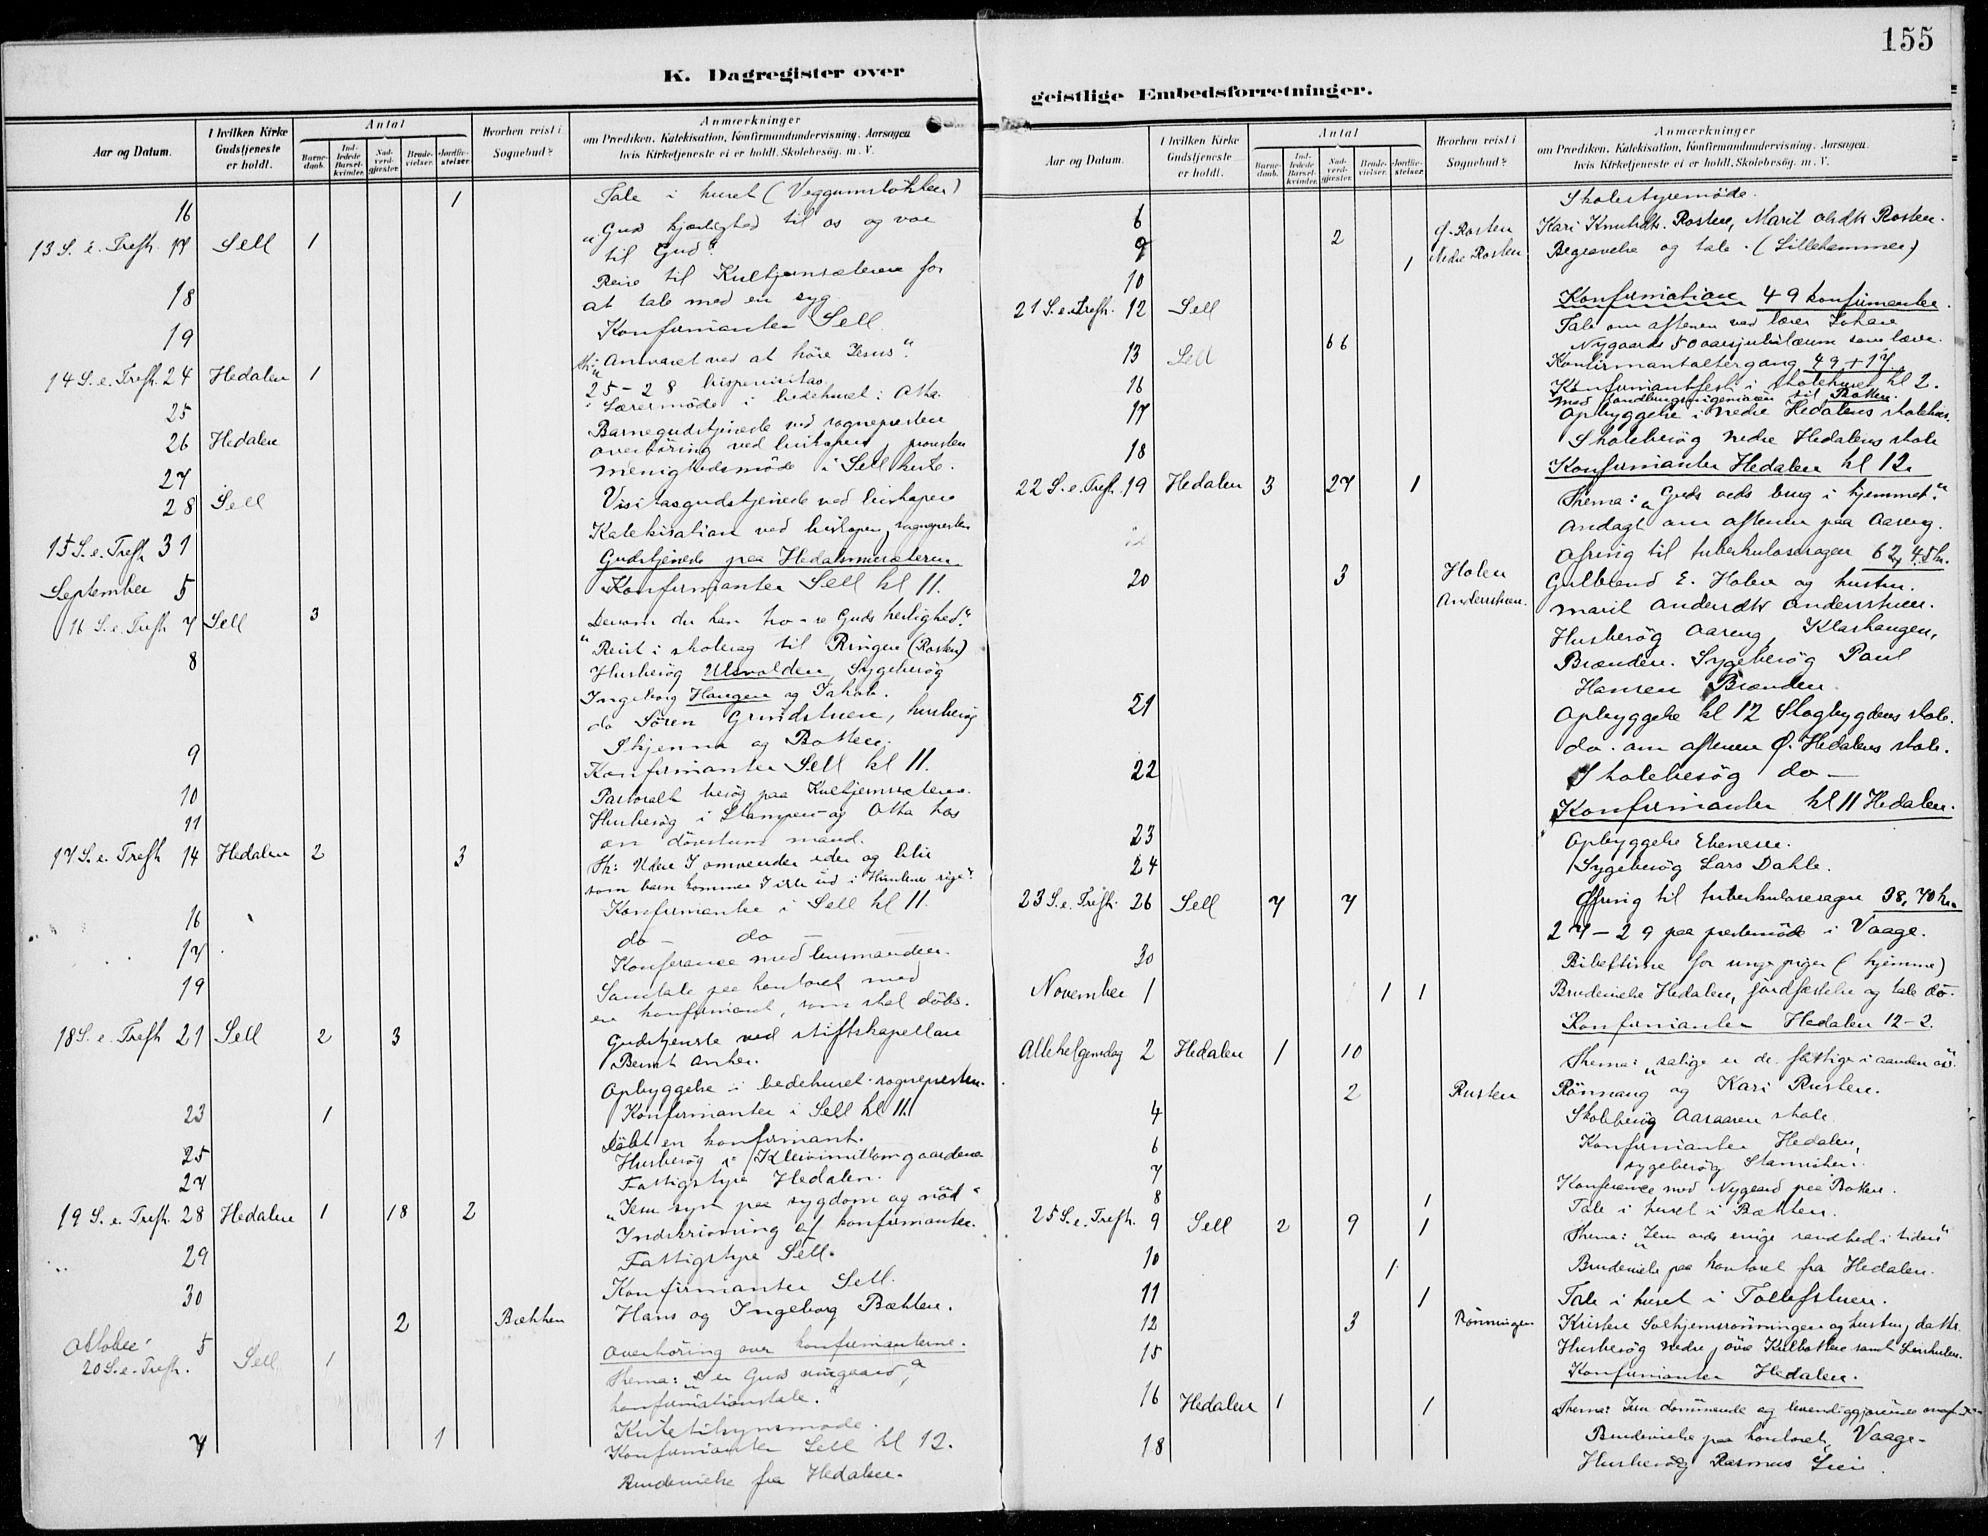 155
K. Dagregister over
geistlige Embedsforretninger.
Aar og Datum.
I hvilken Kirke Gudstjeneste er holdt.
Antal
Barnedaab.
Indledede Barselkvinder.
Nadverdgjæster.
Brudevielser.
Jordfæstelser.
Hvorhen reist i Sognebud?
Anmærkninger
om Prædiken, Katekisation, Konfirmandundervisning, Aarsagen
hvis Kirketjeneste ei er holdt, Skolebesøg, m. V.
16 1 Tale i huset (Veggumsløkken)
13 S. e. Trefh. 17 Sell 1 „Guds kjærlighed til os og vor
til Gud".
18 Reise til Kultjernsæteren for
at tale med en syg
19 Konfirmanter Sell
14 S. e. Trefh. 24 Hedalen 1 Th: „Ansvaret ved at høre Jesus".
25-28 bispevisitas
25 Lærermøde i bedehuset i Otta.
26 Hedalen Barnegudstjeneste ved sognepresten
overhøring ved biskopen, provsten
27 menighedsmøde i Sell kirke.
28 Sell Visitasgudstjeneste ved biskopen
Katekisation ved biskopen, sognepresten
15 S. e. Trefh 31 Gudstjeneste paa Hedalsmusæteren
September 5 Konfirmanter Sell kl 11.
16 S. e. Trefh 7 Sell 3 Dersom du kan tro - se Guds herlighed."
8 Reist i skolesag til Ringen (Rosten)
Husbesøg Ulsvolden, Sygebesøg
Ingeborg Haugen og Jakob.
do Søren Grindstuen, husbesøg
Skjenna og Botten.
9 Konfirmanter Sell kl 11.
10 Pastoralt besøg paa Kultjernsæteren.
11 Husbesøg i Stampen og Otta hos
en døvstum mand.
17 S. e. Trefh 14 Hedalen 2 3 Th: Uden I omvender eder og blir
som barn kommer I ikke ind i Himlenes rige".
16 Konfirmanter i Sell kl 11.
17 do — do —
Konferance med lensmanden.
19 Samtale paa kontoret med
en konfirmant, som skal døbes.
18 S. e. Trefh 21 Sell 2 3 Gudstjenste ved stiftskapellan
Bernt Anker.
Opbyggelse i bedehuset sognepresten.
23 1 Konfirmanter i Sell kl 11.
Døbt en konfirmant.
25 Husbesøg i Kleivimellomgaardene
27 Fattigstyre Hedalen.
19 S. e. Trefh. 28 Hedalen 1 18 2 „Jesu syn paa sygdom og nød"
Indskrivning af konfirmanter.
29 Fattigstyre Sell.
30 Konfirmanter Sell.
2 Bækken Hans og Ingeborg Bækken.
Oktober 5 Overhøring over konfirmanterne.
20 S. e. Trefh. Sell 1 Thema: „I er Guds vingaard,"
konfirmationstale."
Kirketilsynsmøde.
7 1 Konfirmanter Sell kl 12.
Brudevielse fra Hedalen.
Aar og Datum.
I hvilken Kirke Gudstjeneste er holdt.
Antal
Barnedaab.
Indledede Barselkvinder.
Nadverdgjæster.
Brudevielser.
Jordfæstelser.
Hvorhen reist i Sognebud?
Anmærkninger
om Prædiken, Katekisation, Konfirmandundervisning, Aarsagen
hvis Kirketjeneste ei er holdt, Skolebesøg, m. V.
6 Skolestyremøde.
9 2 Ø. Rosten Kari Knutsdt. Rosten, Marit Olsdtr Rosten.
1 Nedre Rosten Begravelse og tale. (Lillehammer)
10
21 S. e. Trefh. 12 Sell Konfirmation 49 konfirmanter.
Tale om aftenen ved lærer Johan
Nygaards 50 aarsjubilæum som lærer.
13 Sell 66 Konfirmantaltergang 49 + 17
16 Konfirmantfest i skolehuset kl 2.
med landbrugsingeniøren til Botten.
17 Opbyggelse i nedre Hedalens skolehus.
18 Skolebesøg nedre Hedalens skole
Konfirmanter Hedalen kl 12.
22 S. e. Trefh. 19 Hedalen 3 27 1 Thema: „Guds ords brug i hjemmet."
Andagt om aftenen paa Aaseng.
Ofring til tuberkulosesagen 62,45 kr.
20 3 Holen Gulbrand E. Holen og hustru.
Andersstuen. Marit Andersdtr Andersstuen.
Husbesøg Aaseng, Klashaugen,
Brænden. Sygebesøg Paul
Hansen Brænden.
21 Opbyggelse kl 12 Skogbygdens skole.
do. om aftenen Ø. Hedalens skole.
22 Skolebesøg do —
Konfirmanter kl 11 Hedalen.
23 Opbyggelse Ebeneser.
24 Sygebesøg Lars Dahle.
23 S. e. Trefh. 26 Sell 7 7 Ofring til tuberkulosesagen 38,70 kr.
27-29 paa prestemøde i Vaage.
30 Bibeltime for unge piger (hjemme)
November 1 1 1 Brudevielse Hedalen, jordfæstelse og tale do-.
Konfirmanter Hedalen 12-2.
Allehelgensdag 2 Hedalen 1 10 Thema: „salige er de fattige i aanden osv.
2 Rusten Rønnaug og Kari Rusten.
4 Skolebesøg Aasaaren skole
6 Konfirmanter Hedalen,
7 sygebesøg
8 Konferance med Nygaard paa Botten.
1 Tale i huset i Bækken.
25 S. e. Trefh. 9 Sell 2 9 1 Thema: „Jesu ords evige sandhed i tiden"
10 1 Brudevielse paa kontoret fra Hedalen.
11 1 Tale i huset i Tollefstuen.
12 3 Rønningen Kristen Solhjemsrønningen og hustru, datter.
15 Husbesøg nedre, øvre Kulbotten samt
Konfirmanter Hedalen.
16 Hedalen 1 1 Thema: Jesu dømmende og levendiggjørende
18 Brudevielse paa kontoret, Vaage-
Husbesøg Rasmus